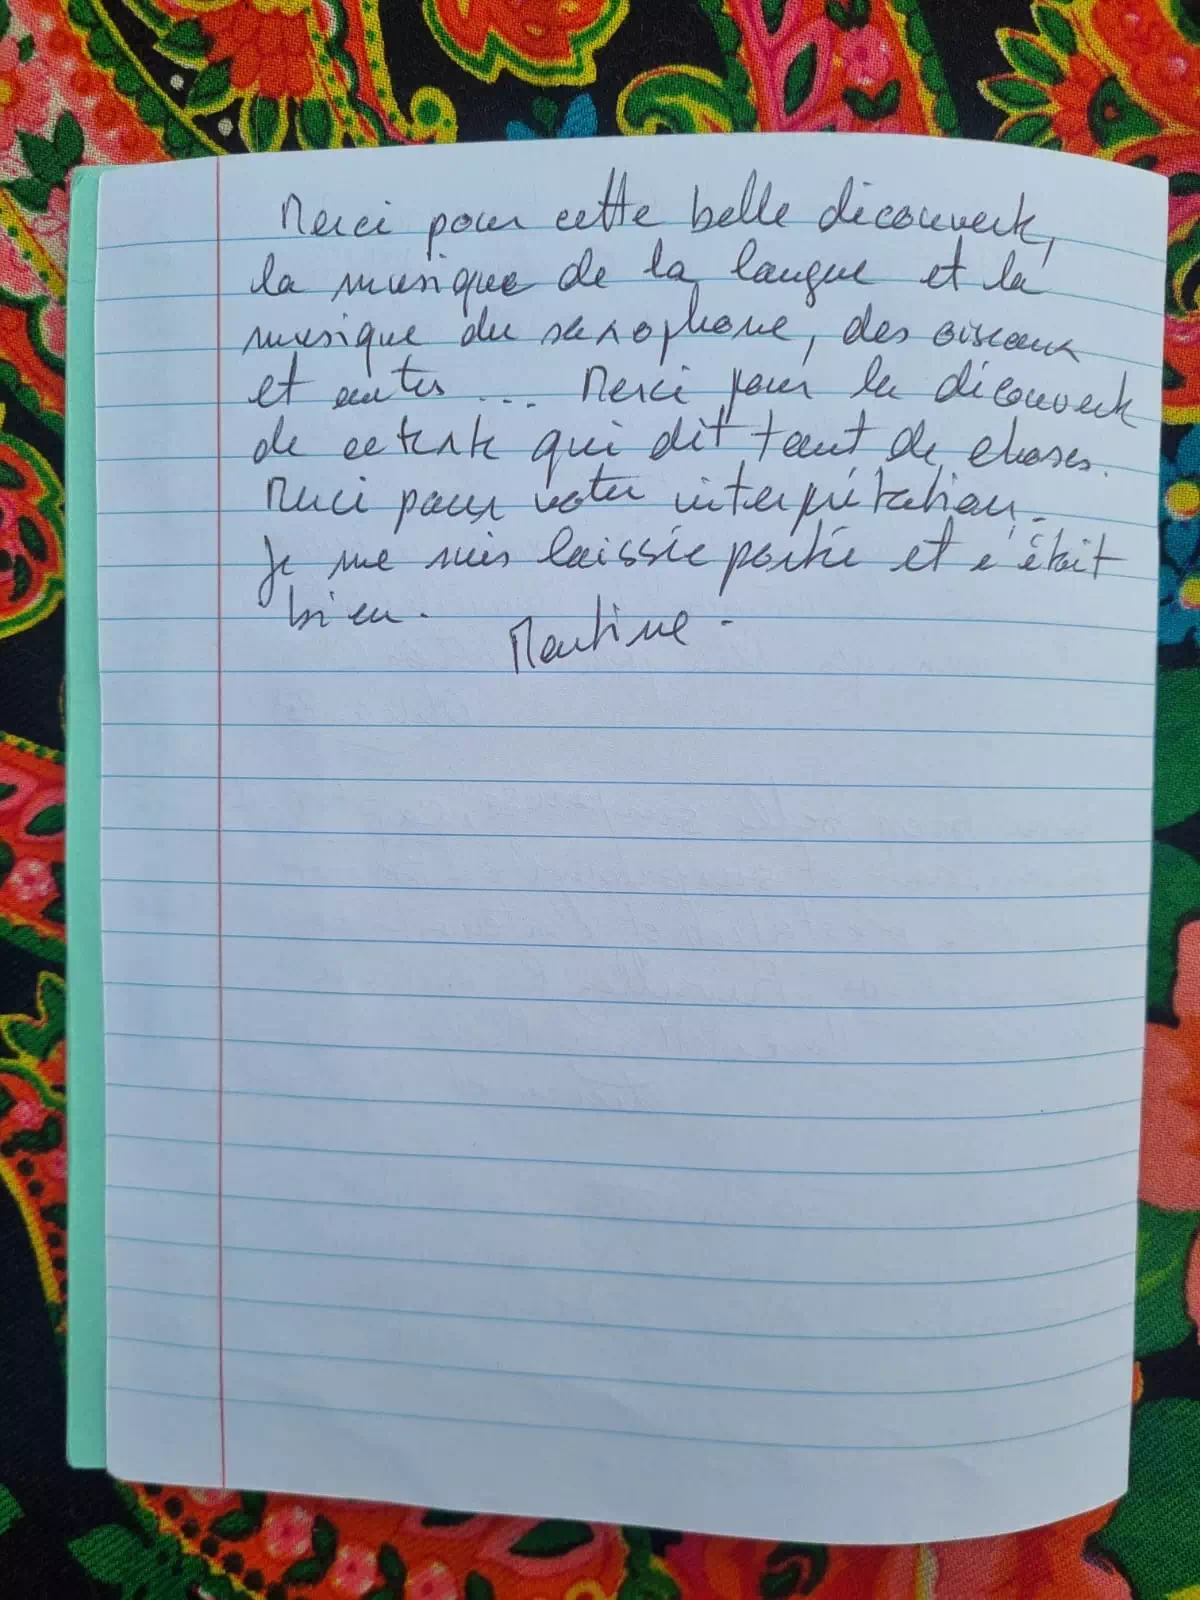 Merci pour cette belle découverte,
la musique de la langue et la
musique du saxophone, des oiseaux
et autres ... Merci pour la découverte
de ce texte qui dit tant de choses.
Merci pour votre interprétation.
Je me suis laissée portée et c'était
bien.
Martine.